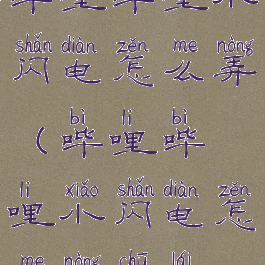 shǎn diàn zěn me nòng
闪电怎么弄
bì li bì
(哔哩哔
li xiǎo shǎn diàn zěn
哩小闪电怎
me nòng chū lái